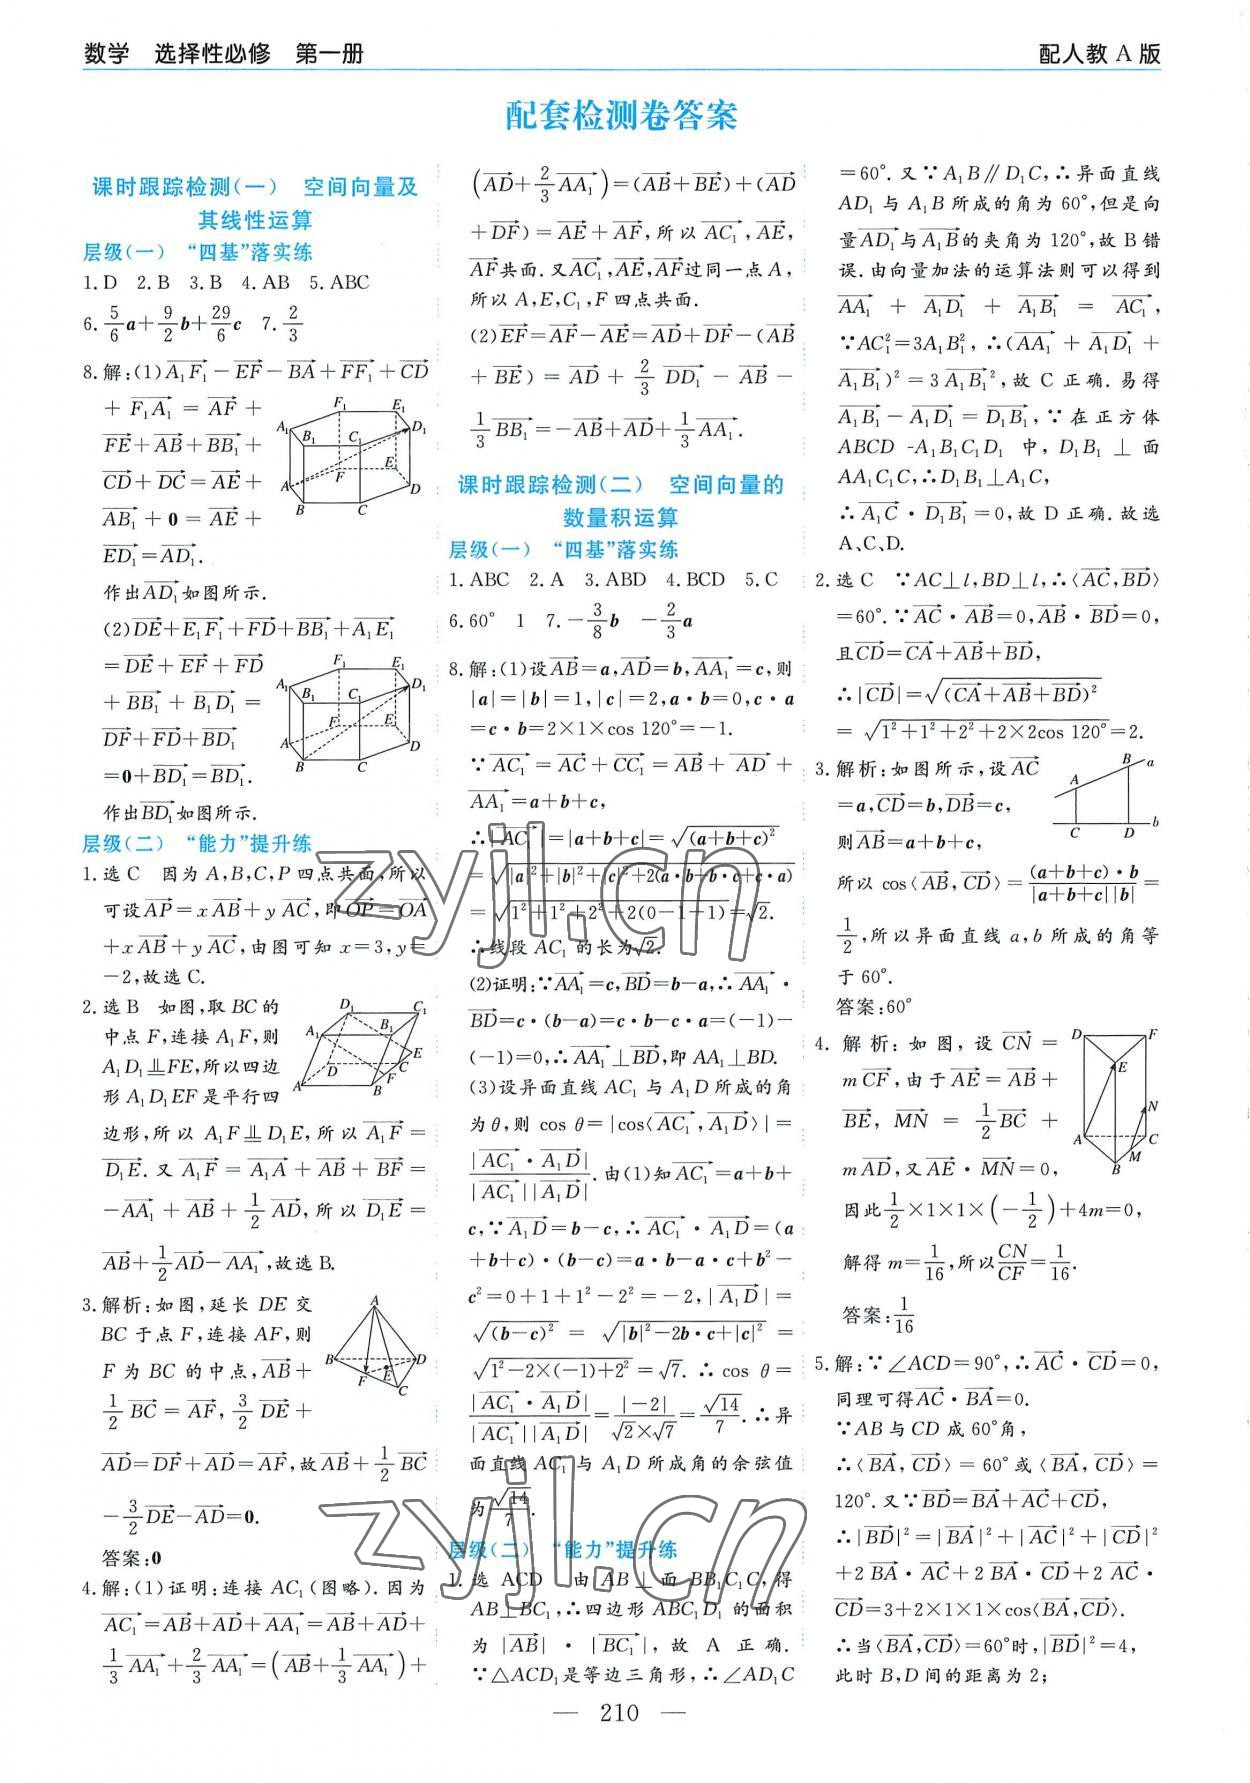 数学　选择性必修　第一册
配人教 A 版
配套检测卷答案
课时跟踪检测(一)　空间向量及
其线性运算
层级(一)　“四基”落实练
1. D　2. B　3. B　4. AB　5. ABC
6. 5/6 a+9/2 b+29/6 c　7. 2/3
8. 解:(1)A₁F₁→−EF→−BA→+FF₁→+CD→
+F₁A₁→=AF→+
FE→+AB→+BB₁→+
CD→+DC→=AE→+
AB₁→+0=AE→+
ED₁→=AD₁→.
作出AD₁→如图所示.
F₁ E₁ A₁ B₁ C₁ D₁ F E A D B C
(2)DE→+E₁F₁→+FD→+BB₁→+A₁E₁→
=DE→+EF→+FD→
+BB₁→+B₁D₁→=
DF→+FD→+BD₁→
=0+BD₁→=BD₁→.
作出BD₁→如图所示.
F₁ E₁ A₁ B₁ C₁ D₁ F E A D B C
层级(二)　“能力”提升练
1. 选 C　因为 A,B,C,P 四点共面,所以
可设AP→=xAB→+yAC→,即OP→=OA→
+xAB→+yAC→,由图可知 x=3,y=
−2,故选 C.
2. 选 B　如图,取 BC 的
中点 F,连接 A₁F,则
A₁D₁⫫FE,所以四边
形 A₁D₁EF 是平行四
边形,所以 A₁F⫫D₁E,所以A₁F→=
D₁E→.又A₁F→=A₁A→+AB→+BF→=
−AA₁→+AB→+1/2 AD→,所以D₁E→=
AB→+1/2 AD→−AA₁→,故选 B.
D₁ C₁ A₁ B₁ E D C F A B
3. 解析:如图,延长 DE 交
BC 于点 F,连接 AF,则
F 为 BC 的中点,AB→+
1/2 BC→=AF→,3/2 DE→+
AD→=DF→+AD→=AF→,故AB→+1/2 BC→
−3/2 DE→−AD→=0.
答案:0
A B D F E C
4. 解:(1)证明:连接 AC₁(图略).因为
AC₁→=AB→+AD→+AA₁→=AB→+AD→+
1/3 AA₁→+2/3 AA₁→=(AB→+1/3 AA₁→)+
(AD→+2/3 AA₁→)=(AB→+BE→)+(AD→
+DF→)=AE→+AF→,所以AC₁→,AE→,
AF→共面.又AC₁→,AE→,AF→过同一点 A,
所以 A,E,C₁,F 四点共面.
(2)EF→=AF→−AE→=AD→+DF→−(AB→
+BE→)=AD→+2/3 DD₁→−AB→−
1/3 BB₁→=−AB→+AD→+1/3 AA₁→.
课时跟踪检测(二)　空间向量的
数量积运算
层级(一)　“四基”落实练
1. ABC　2. A　3. ABD　4. BCD　5. C
6. 60°　1　7. −3/8 b　−2/3 a
8. 解:(1)设AB→=a,AD→=b,AA₁→=c,则
|a|=|b|=1,|c|=2,a·b=0,c·a
=c·b=2×1×cos 120°=−1.
∵AC₁→=AC→+CC₁→=AB→+AD→+
AA₁→=a+b+c,
∴|AC₁→|=|a+b+c|=√(a+b+c)²
=√|a|²+|b|²+|c|²+2(a·b+b·c+c·a)
=√1²+1²+2²+2(0−1−1)=√2.
∴线段 AC₁ 的长为√2.
(2)证明:∵AA₁→=c,BD→=b−a,∴AA₁→·
BD→=c·(b−a)=c·b−c·a=(−1)−
(−1)=0,∴AA₁→⊥BD→,即 AA₁⊥BD.
(3)设异面直线 AC₁ 与 A₁D 所成的角
为 θ,则 cos θ=|cos⟨AC₁→,A₁D→⟩|=
|AC₁→·A₁D→|/|AC₁→||A₁D→|.由(1)知AC₁→=a+b+
c,∵A₁D→=b−c,∴AC₁→·A₁D→=(a
+b+c)·(b−c)=a·b−a·c+b²−
c²=0+1+1²−2²=−2,|A₁D→|=
√(b−c)²=√|b|²−2b·c+|c|²=
√1²−2×(−1)+2²=√7.∴cos θ=
|AC₁→·A₁D→|/|AC₁→||A₁D→|=|−2|/√2×√7=√14/7.∴异
面直线 AC₁ 与 A₁D 所成角的余弦值
为√14/7.
层级(二)　“能力”提升练
1. 选 ACD　由 AB⊥面 BB₁C₁C,得
AB⊥BC₁,∴四边形 ABC₁D₁ 的面积
为|AB→|·|BC₁→|,故 A 正确.
∵△ACD₁是等边三角形,∴∠AD₁C
=60°.又∵A₁B∥D₁C,∴异面直线
AD₁ 与 A₁B 所成的角为 60°,但是向
量AD₁→与A₁B→的夹角为 120°,故 B 错
误.由向量加法的运算法则可以得到
AA₁→+A₁D₁→+A₁B₁→=AC₁→,
∵AC₁²=3A₁B₁²,∴(AA₁→+A₁D₁→+
A₁B₁→)²=3A₁B₁→²,故 C 正确.易得
A₁B₁→−A₁D₁→=D₁B₁→,∵在正方体
ABCD-A₁B₁C₁D₁ 中,D₁B₁⊥面
AA₁C₁C,∴D₁B₁⊥A₁C,
∴A₁C→·D₁B₁→=0,故 D 正确.故选
A、C、D.
2. 选 C　∵AC⊥l,BD⊥l,∴⟨AC→,BD→⟩
=60°.∵AC→·BA→=0,AB→·BD→=0,
且CD→=CA→+AB→+BD→,
∴|CD→|=√(CA→+AB→+BD→)²
=√1²+1²+2²+2×2cos 120°=2.
3. 解析:如图所示,设AC→
=a,CD→=b,DB→=c,
则AB→=a+b+c,
所以 cos⟨AB→,CD→⟩=(a+b+c)·b/|a+b+c||b|=
1/2,所以异面直线 a,b 所成的角等
于 60°.
答案:60°
A B a C D b
4. 解析:如图,设CN→=
mCF→,由于AE→=AB→+
BE→,MN→=1/2 BC→+
mAD→,又AE→·MN→=0,
因此1/2×1×1×(−1/2)+4m=0,
解得 m=1/16,所以CN/CF=1/16.
答案:1/16
D F E N A C B M
5. 解:∵∠ACD=90°,∴AC→·CD→=0,
同理可得AC→·BA→=0.
∵AB 与 CD 成 60°角,
∴⟨BA→,CD→⟩=60°或⟨BA→,CD→⟩=
120°.又∵BD→=BA→+AC→+CD→,
∴|BD→|²=|BA→|²+|AC→|²+|CD→|²
+2BA→·AC→+2BA→·CD→+2AC→·
CD→=3+2×1×1×cos⟨BA→,CD→⟩.
∴当⟨BA→,CD→⟩=60°时,|BD→|²=4,
此时 B,D 间的距离为 2;
— 210 —
zyjl.cn
zyjl.cn